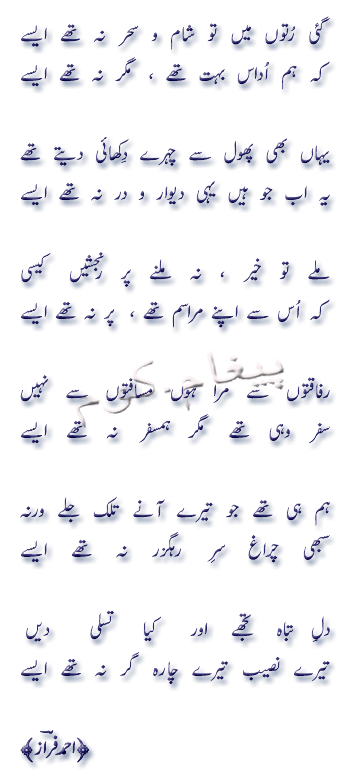 گئی رُتوں میں تو شام و سحر نہ تھے ایسے
کہ ہم اُداس بہت تھے ، مگر نہ تھے ایسے
یہاں بھی پھول سے چہرے دِکھائی دیتے تھے
یہ اب جو ہیں یہی دیوار و در نہ تھے ایسے
ملے تو خیر ، نہ ملنے پر رنجشیں کیسی
کہ اُس سے اپنے مراسم تھے ، پر نہ تھے ایسے
پیغام.کوم
رفاقتوں سے مرا ہوں مسافتوں سے نہیں
سفر وہی تھے مگر ہمسفر نہ تھے ایسے
ہم ہی تھے جو تیرے آنے تلک جلے ورنہ
سبھی چراغ سرِ رہگزر نہ تھے ایسے
دلِ تباہ تجھے اور کیا تسلی دیں
تیرے نصیب تیرے چارہ گر نہ تھے ایسے
﴿احمد فراز﴾